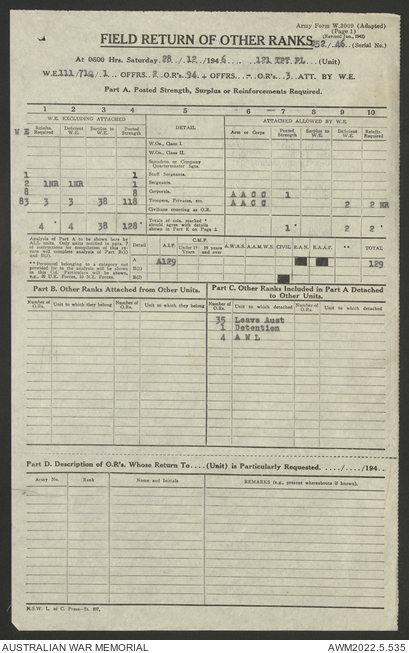 Army Form W.3009 (Adapted)
(Page 1)
(Revised Jan., 1943)
FIELD RETURN OF OTHER RANKS 252/46 (Serial No.)
At 0600 Hrs. Saturday 28/12/1946 121 TPT PL (Unit)
W.E. 111/710/1 OFFRS. 2 O.R's. 94 + OFFRS. - O.R's. 3 ATT. BY W.E.
Part A. Posted Strength, Surplus or Reinforcements Required.
1 2 3 4 5 6 7 8 9 10
W.E. EXCLUDING ATTACHED ATTACHED ALLOWED BY W.E.
W E Reinfts. Required Deficient W.E. Surplus to W.E. Posted Strength DETAIL Arm or Corps Posted Strength Surplus to W.E. Deficient W.E. Reinfts. Required
W.Os., Class I.
W.Os., Class II.
Squadron or Company Quartermaster Sgts.
1 1 Staff Sergeants.
2 1NR 1NR 1 Sergeants.
8 8 Corporals. A A C C 1
83 3 3 38 118 Troopers, Privates, etc. A A C C 2 2 NR
Civilians counting as O.R.
4 * 4 38 128* Totals of cols. marked * should agree with details shown in Part E on Page 2. 1* 2 2 *
Analysis of Part A to be shown here by ALL units.
Detail A.I.F. C.M.F. Under 19 Years 19 years and over A.W.A.S. A.A.M.W.S. CIVIL R.A.N. R.A.A.F. ** TOTAL
A A129 129
B(i)
B(ii)
**Personnel belonging to a category not provided for in the analysis will be shown in this Col. Particulars will be shown, e.g., 20 U.K. Forces, 10 N.Z. Forces.
Part B. Other Ranks Attached from Other Units.
Part C. Other Ranks Included in Part A Detached to Other Units.
Number of O.Rs. Unit to which they belong Number of O.Rs. Unit to which they belong Number of O.Rs. Unit to which detached Number of O.Rs. Unit to which detached
35 Leave Aust
1 Detention
4 A W L
Part D. Description of O.R's. Whose Return To....(Unit) is Particularly Requested. ..../..../194..
Army No. Rank Name and Initials REMARKS (e.g., present whereabouts if known).
N.S.W. L. of C. Press—
AUSTRALIAN WAR MEMORIAL AWM2022.5.535